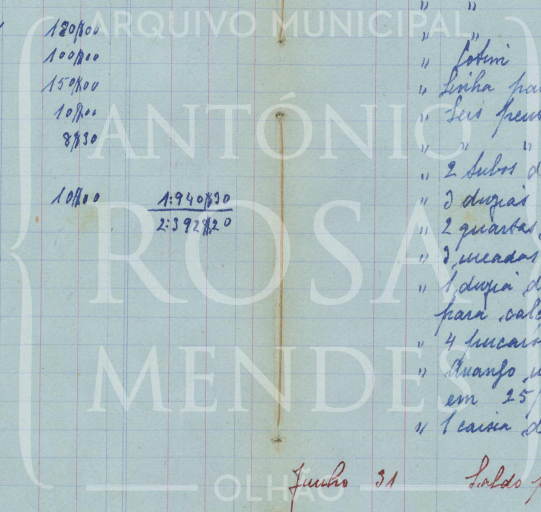 ARQUIVO MUNICIPAL
ANTÓNIO
ROSA
MENDES
OLHÃO
180$00
100$00
150$00
10$00
8$30
10$00 1:940$30
2:392$20
" "
" "
"
" Linha pa
" Seis
" " "
" 2 tubos d
" 3 duzias
" 2 quartas
" 3 meadas
" 1 duzia d
para calc
" 4
"
em 25
" 1 caixa d
Junho 31 Saldo p